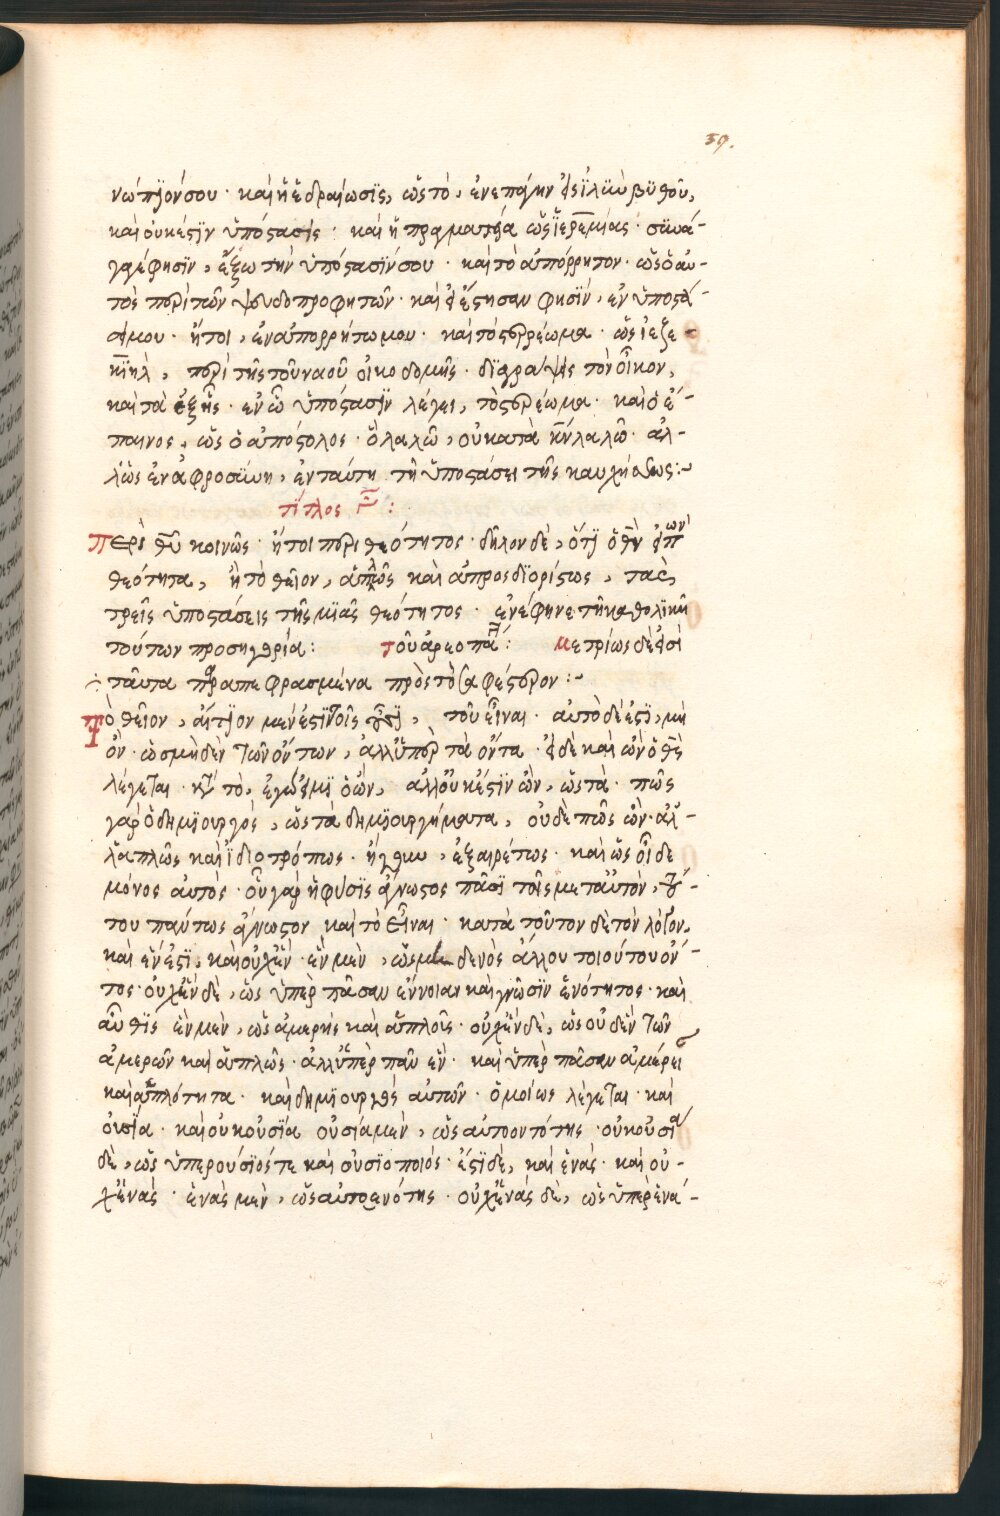 39.
νώπϊόν σου · καὶ ἡ ἑδραίωσϊς, ὡς τὸ, ἐνεπάγην εἰς ἰλῢν βϋθοῦ,
καὶ οὐκ ἔστϊν ὑπόστασις · καὶ ἡ πραγματεία ὡς ἱερεμίας · συνά-
γαγέ φησϊν, ἔξω τὴν ὑπόστασίν σου · καὶ τὸ ἀπόρρητον · ὡς ὁ αὐ-
τὸς περὶ τῶν ψευδοπροφητῶν · καὶ εἰ ἔστησαν φησϊν, ἐν ὑποστά-
σει μου · ἤτοι, ἐν ἀπορρήτω μου · καὶ τὸ στερέωμα · ὡς ἰεζε
κϊηλ, περὶ τῆς τοῦ ναοῦ οἰκοδομῆς · δϊαγράψεις τὸν οἶκον,
καὶ τὰ ἑξῆς · ἐν ὧ ὑπόστασϊν λέγει, τὸ στερέωμα · καὶ ὁ ἔ-
παινος, ὡς ὁ ἀπόστολος · ὃ λαλῶ, οὐ κατὰ κν λαλῶ · ἀλ-
λ' ὡς ἐν ἀφροσύνη, ἐν ταύτη τῆ ὑποστάσει τῆς καυχήσεως :~
τίτλος :
Περὶ θυ κοινῶς · ἤτοι περὶ θεότητος · δῆλον δὲ, ὅτϊ ὁ θν εἰπὼν
θεότητα, ἢ τὸ θεῖον, ἁπλῶς καὶ ἀπροσδϊορίστως, τὰς
τρεῖς ὑποστάσεις τῆς μϊᾶς θεότητος · ἐνέφηνε τῆ καθολϊκῆ
τούτων προσηγορία : τοῦ ἀρεοπαγ : Μετρίως δέ εἰσϊ
ταῦτα παραπεφρασμένα πρὸς τὸ σαφέστερον :~
Τὸ θεῖον, αἴτϊον μέν ἐστϊ τοῖς πᾶσϊ, τοῦ εἶναι · αὐτὸ δέ ἐστϊ, μὴ
ὄν · ὡς μηδὲν τῶν ὄντων, ἀλλ' ὑπὲρ τὰ ὄντα · εἰ δὲ καὶ ὢν ὁ θς
λέγεται · κατὰ τὸ, ἐγώ εἰμϊ ὁ ὤν, ἀλλ' οὐκ ἔστϊν ὢν, ὡς τὰ · πῶς
γὰρ ὁ δημϊουργὸς, ὡς τὰ δημϊουργήματα, οὐδέ πως ὤν · ἀλ-
λ' ἁπλῶς καὶ ἰδϊοτρόπως · ἤγουν, ἐξαιρέτως · καὶ ὡς οἶδε
μόνος αὐτὸς · οὗ γὰρ ἡ φύσϊς ἄγνωστος πᾶσϊ τοῖς μετ' αὐτὸν, τού-
του πάντως ἄγνωστον καὶ τὸ εἶναι · κατὰ τοῦτον δὲ τὸν λόγον,
καὶ ἕν ἐστϊ, καὶ οὐχ ἕν · ἓν μὲν, ὡς μηδενὸς ἄλλου τοιούτου ὄν-
τος · οὐχ ἓν δὲ, ὡς ὑπὲρ πᾶσαν ἔννοιαν καὶ γνῶσϊν ἑνότητος · καὶ
αὖθϊς ἓν μὲν, ὡς ἀμερὴς καὶ ἁπλοῖς · οὐχ ἓν δὲ, ὡς οὐδὲν τῶν
ἀμερῶν καὶ ἁπλῶς · ἀλλ' ὑπὲρ πᾶν ἕν · καὶ ὑπὲρ πᾶσαν ἀμέρει
καὶ ἁπλότητα · καὶ δημϊουργὸς αὐτῶν · ὁμοίως λέγεται · καὶ
οὐσία · καὶ οὐκ οὐσϊα οὐσία μὲν, ὡς αὐτοοντότης · οὐκ οὐσία
δὲ, ὡς ὑπερούσϊός τε καὶ οὐσϊοποιός · ἔστϊ δὲ, καὶ ἑνάς · καὶ οὐ-
χ ἑνάς · ἑνὰς μὲν, ὡς αὐτοενότης · οὐχ ἑνάς δὲ, ὡς ὑπὲρ ἑνά-